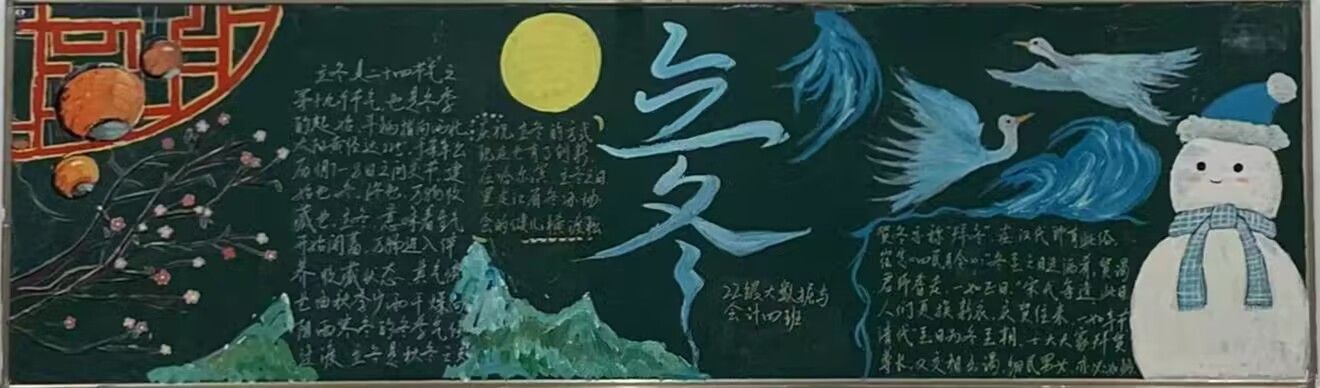 立冬是二十四节气之
第十九个节气,也是冬季
的起始。斗柄指向西北
太阳黄经达225°,于每年公
历11月7-8日之间交节。建
始也,冬,终也,万物收
藏也。立冬,意味着生气
开始闭蓄,万物进入休
养、收藏状态。其气候
也由秋季少雨干燥向
阴雨寒冻的冬季气候
过渡。立冬是秋冬之
庆祝立冬的方式
也有了创新,
在哈尔滨,立冬之日
黑龙江省冬泳协
会的健儿
立冬
22级大数据与
会计四班
贺冬亦称"拜冬",在汉代即有此俗。
崔寔《四民月令》:"冬至之日进酒肴,贺谒
君师耆老,一如正日。"宋代每逢此日
人们更换新衣,庆贺往来,一如年节
清代"至日为冬至朝,士大夫家拜贺
尊长,又交相出谒。细民男女,亦必更鲜